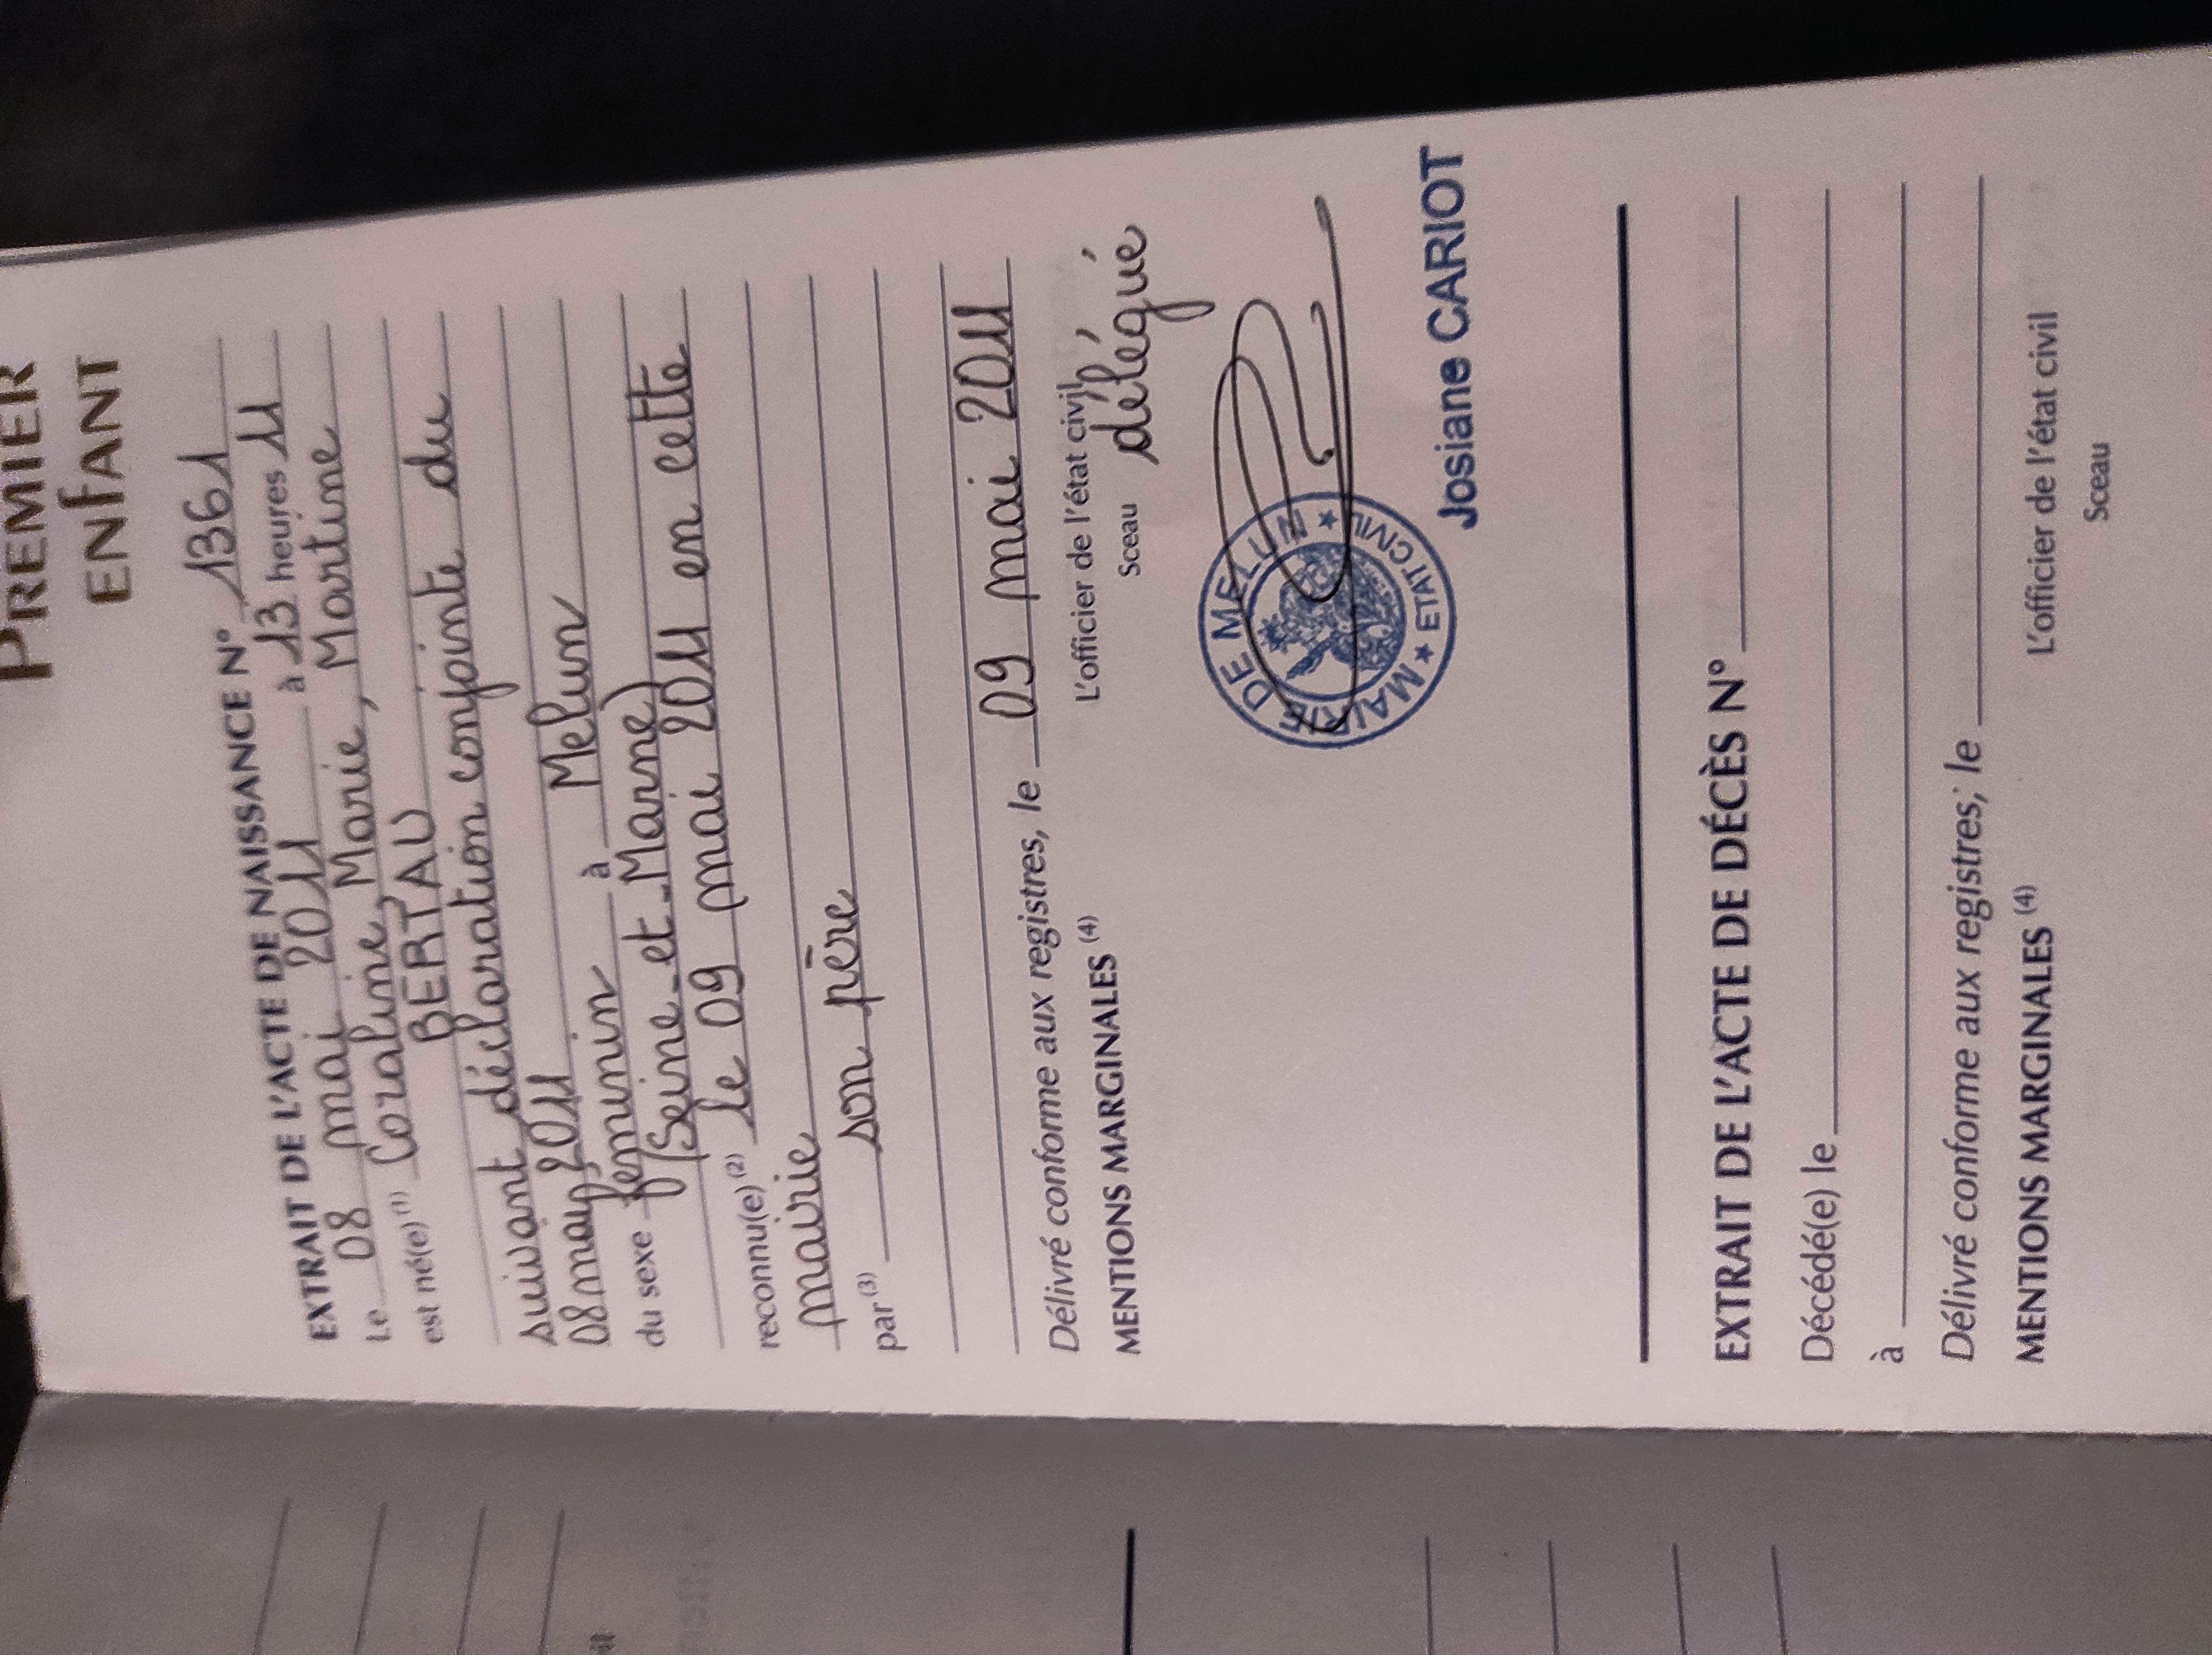 PREMIER
ENFANT
EXTRAIT DE L'ACTE DE NAISSANCE N° 1361
Le 08 mai 2011 à 13 heures 11
est né(e) (1) Coraline, Marie, Martine
BERTAU
suivant déclaration conjointe du
08 mai 2011
du sexe féminin à Melun
(Seine-et-Marne)
reconnu(e) (2) le 09 mai 2011 en cette
mairie
par (3) son père
Délivré conforme aux registres, le 09 mai 2011
MENTIONS MARGINALES (4)
L'officier de l'état civil,
Sceau délégué
MAIRIE DE MELUN
★ ETAT CIVIL ★
Josiane CARIOT
EXTRAIT DE L'ACTE DE DÉCÈS N°
Décédé(e) le
à
Délivré conforme aux registres, le
MENTIONS MARGINALES (4)
L'officier de l'état civil
Sceau